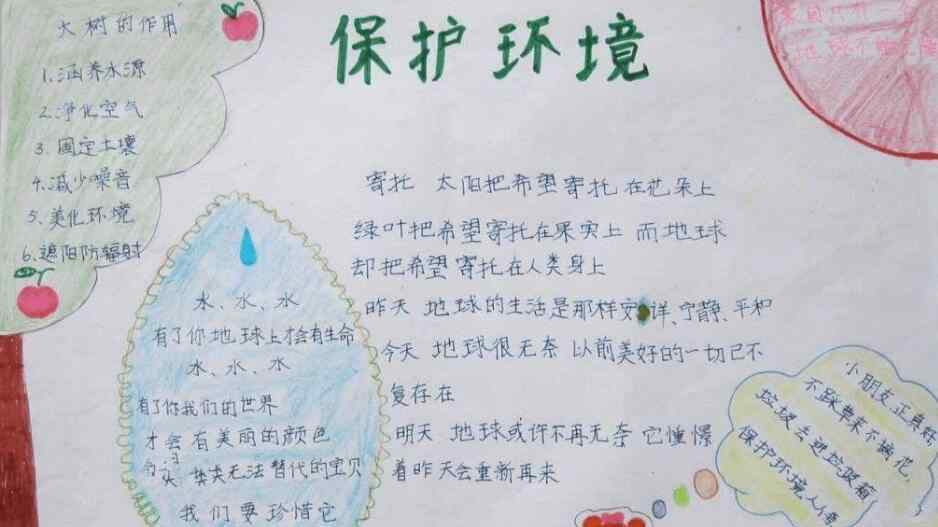 保护环境
大树的作用
1.涵养水源
2.净化空气
3.固定土壤
4.减少噪音
5.美化环境
6.遮阳防辐射
寄托 太阳把希望寄托在花朵上
绿叶把希望寄托在果实上 而地球
却把希望寄托在人类身上
昨天 地球的生活是那样安详、宁静、平和
今天 地球很无奈 以前美好的一切已不
复存在
明天 地球或许不再无奈 它憧憬
着昨天会重新再来
水、水、水
有了你地球上才会有生命
水、水、水
有了你我们的世界
才会有美丽的颜色
类无法替代的宝贝
我们要珍惜它
小朋友正真好
不踩草来不摘花,
垃圾丢进垃圾箱
保护环境人人